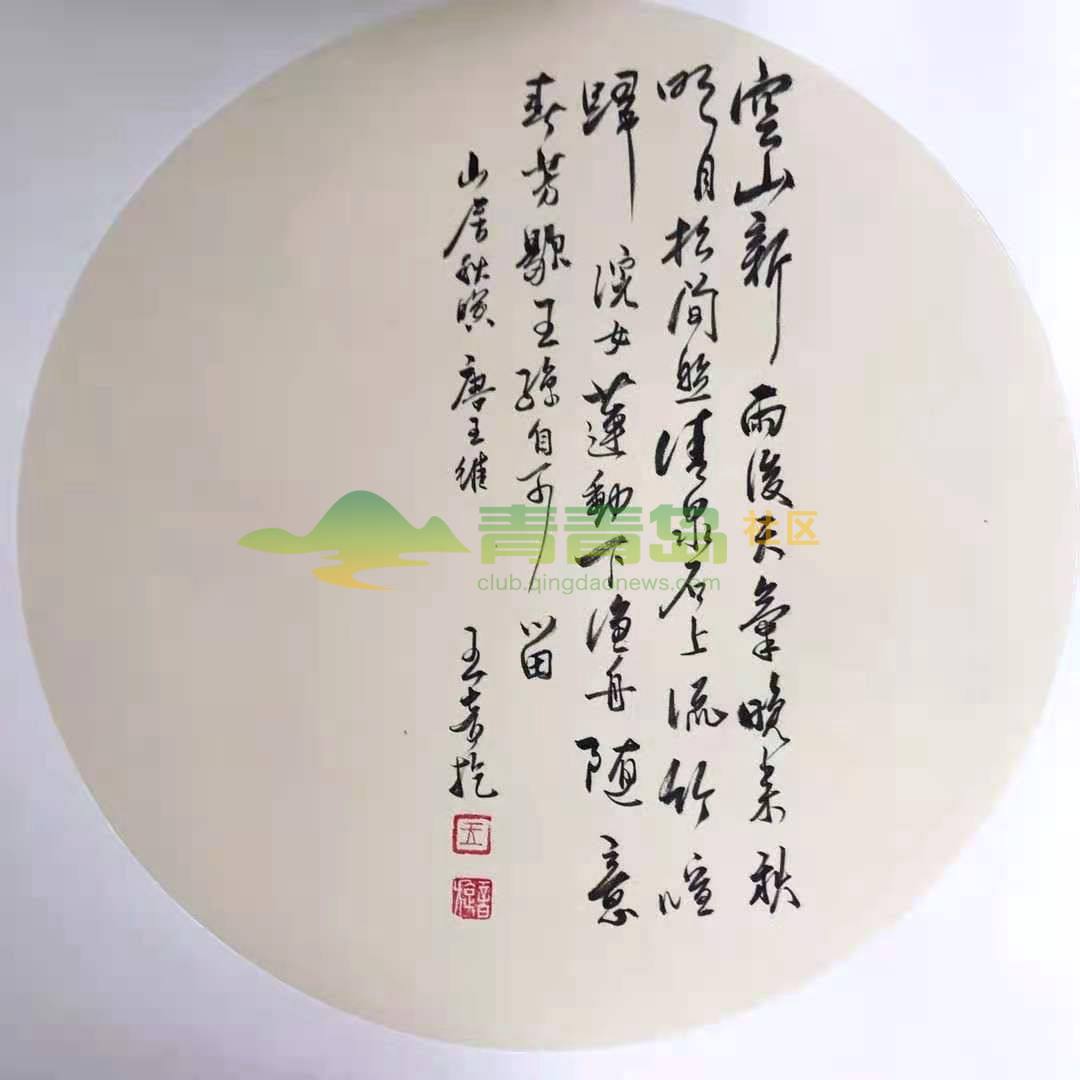 空山新雨後天氣晚来秋
明月松间照清泉石上流竹喧
歸浣女蓮動下渔舟随意
春芳歇王孫自可留
山居秋暝 唐王維 王音
王
青青岛社区
club.qingdaonews.com